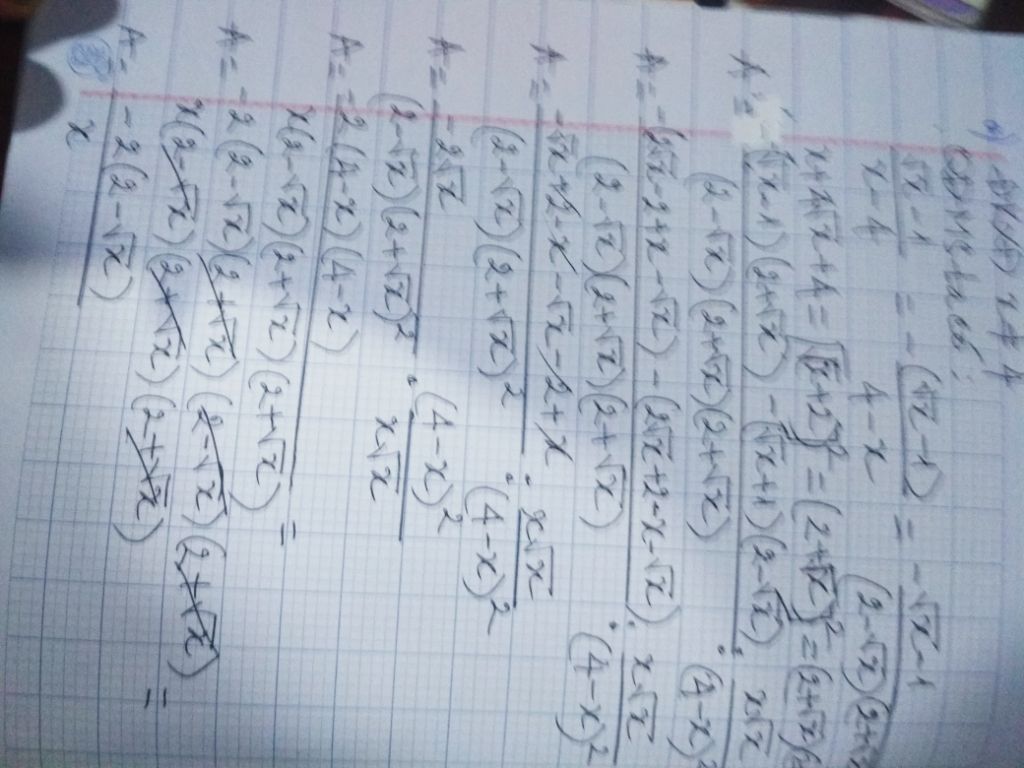 a) ĐKXĐ x ≠ 4
√x-1 / x-4 = -(√x-1) / 4-x = -√x-1 / (2-√x)(2+√x
x+4√x+4 = √(x+2)² = (2+√x)² = (2+√x)(2
A = -(√x-1)(2+√x) - (√x+1)(2-√x) / (2-√x)(2+√x)(2+√x) : x√x / (4-x)²
A = -(2√x-2+x-√x) - (2√x+2-x-√x) / (2-√x)(2+√x)(2+√x) : x√x / (4-x)²
A = -√x+2-x-√x-2+x / (2-√x)(2+√x)² : x√x / (4-x)²
A = -2√x / (2-√x)(2+√x)² · (4-x)² / x√x
A = -2(4-x)(4-x) / x(2-√x)(2+√x)(2+√x) =
A = -2(2-√x)(2+√x)(2-√x)(2+√x) / x(2-√x)(2+√x)(2+√x) =
A = -2(2-√x) / x